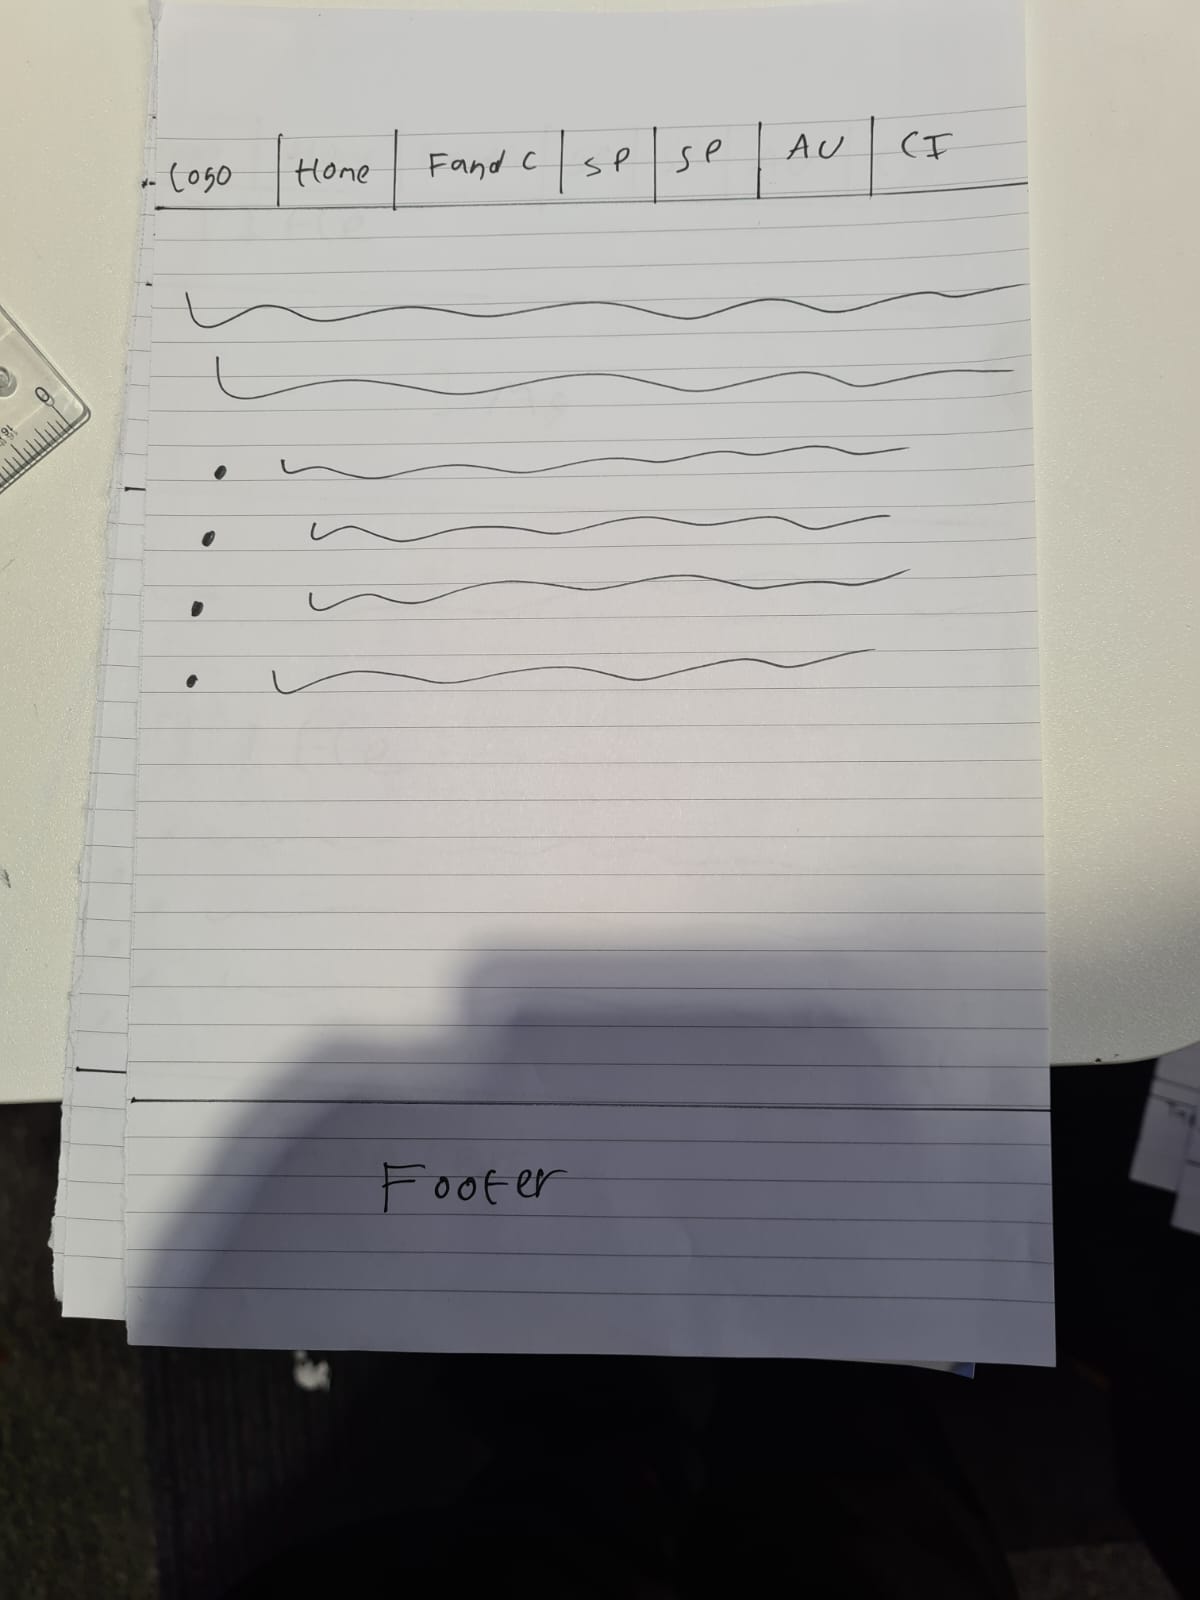 Logo Home F and C SP SP AU CI
Footer